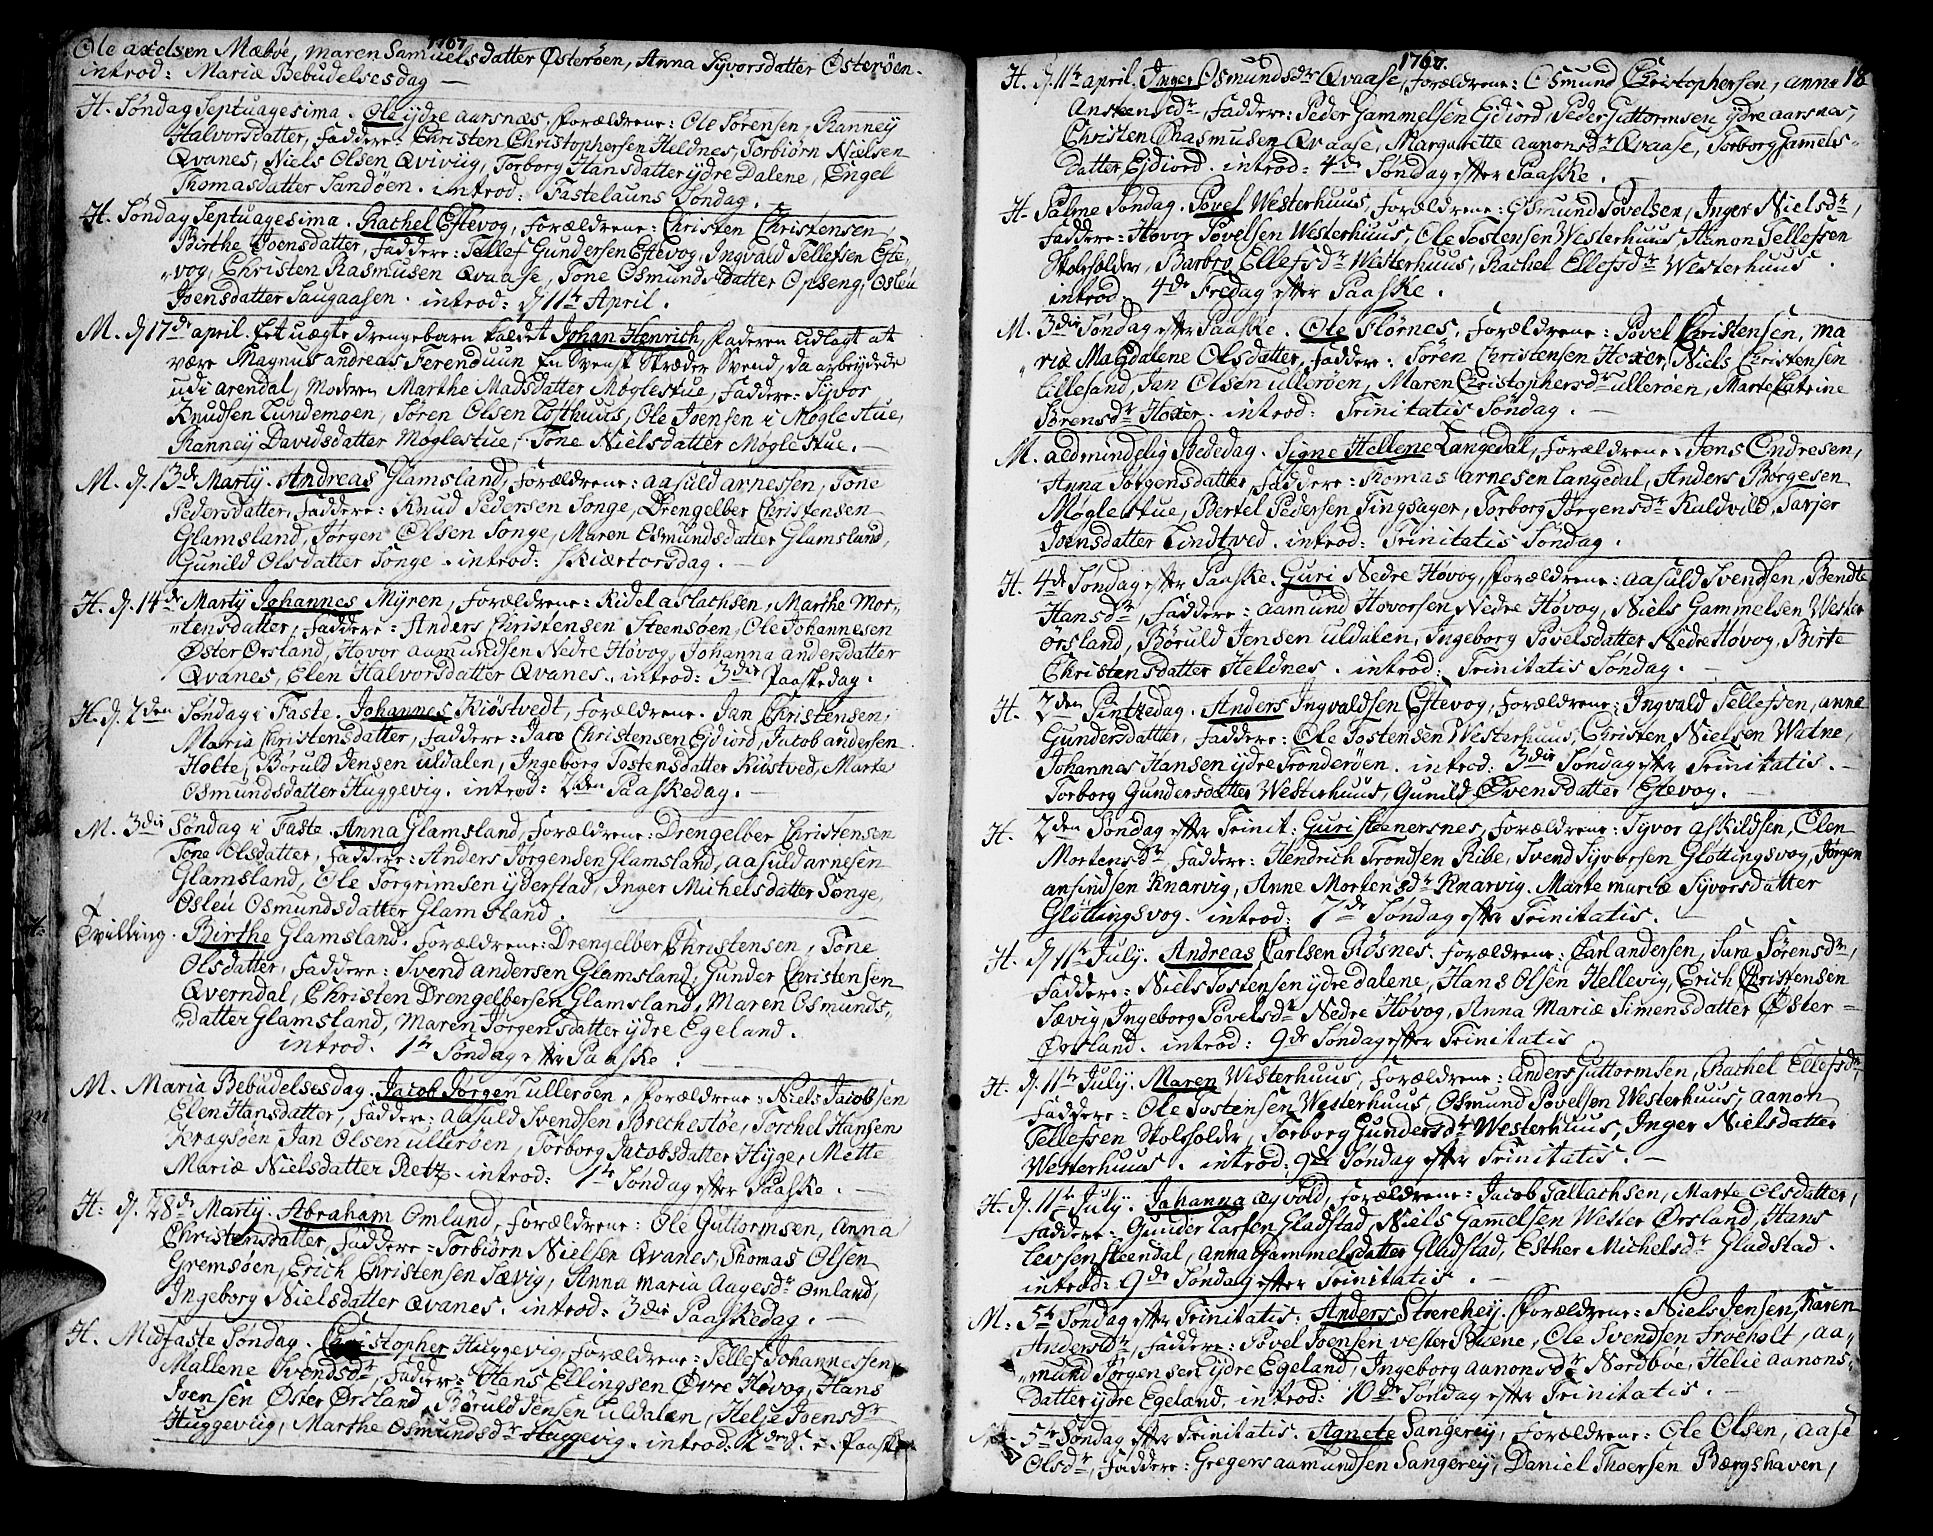 1767
Ole axelsen Mæbøe, maren Samuelsdatter Østerøen, Anna Syvorsdatter Østerøen.
introd: Mariæ Bebudelsesdag —
H. Søndag Septuagesima. Ole ydre aarsnæs, forældrene: Ole Sørensen, Ranney
Halvorsdatter, Faddere: Christen Christophersen Heldnes, Torbiørn Nielsen
Qvanes, Niels Olsen Qvivig, Torborg Hansdatter ydre Dalene, Engel
Thomasdatter Sandøen. introd: Fastelauns Søndag.
H. Søndag Septuagesima. Rachel Eftevog, forældrene: Christen Christensen,
Birthe Joensdatter, Faddere: Tellef Gundersen Eftevog, Ingvald Tellefsen Efte-
„vog, Christen Rasmusen Qvaase, Tone Osmundsdatter Opseng, Osleu
Joensdatter Saugaasen. introd: d 11te April.
M. d 17de april. Et uægte drengebarn kaldet Johan Henrich, faderen udlagt at
være Magnus andreas Ferenduun En Svensk Skræder Svend, da arbeydede
udi arendal, moderen Marthe Madsdatter Møglestue, Faddere: Syvor
Knudsen Lundemoen, Søren Olsen Lofthuus, Ole Joensen i Møglestue,
Ranney Davidsdatter Møglestue, Tone Nielsdatter Møglestue. —
M. d. 13de Marty. Andreas Glamsland, forældrene: aasuld arnessen, Tone
Pedersdatter, Faddere: Knud Pedersen Songe, Drengelber Christensen
Glamsland, Jørgen Olsen Songe, Maren Osmundsdatter Glamsland,
Gunild Olsdatter Songe. introd: Skiærtorsdag. —
H. d. 14de Marty Johannes Myren, forældrene: Kidel aslachsen, Marthe Mor-
„tensdatter, Faddere: Anders Christensen Steensøen, Ole Johannesen
Øster Ørsland, Hovor aamundsen Nedre Høvog, Johanna andersdatter
Qvanes, Elen Halvorsdatter Qvanes. introd: 3die Paaskedag.
H. d. 2den Søndag i Faste. Johannes Kiøstvedt, forældrene: Jan Christensen,
Maria Christensdatter, Faddere: Jaco Christensen Ejdiord, Jacob andersen
Holte, Børuld Jensen uldalen, Ingeborg Tostensdatter Kiøstved, Marta
Osmundsdatter Huggevig. introd: 2den Paaskedag. —
M. 3die Søndag i Faste. Anna Glamsland, forældrene: Drengelber Christensen
Tone Olsdatter, Faddere: Anders Jørgensen Glamsland, aasuld arnesen
Glamsland, Ole Torgrimsen yderstad, Inger Michelsdatter Songe,
Osleu Osmundsdatter Glamsland.
Tvilling. Birthe Glamsland. forældrene: Drengelber Christensen, Tone
Olsdatter, Faddere: Svend andersen Glamsland, Gunder Christensen
Qverndal, Christen Drengelbersen Glamsland, Maren Osmunds-
„datter Glamsland, Maren Jørgensdatter ydre Egeland.
introd. 1te Søndag efter Paaske.
M. Maria Bebudelsesdag. Jacob Jørgen ullerøen, forældrene: Niels Jacobsen
Elen Hansdatter, Faddere: aasuld Svendsen Brechestøe, Torchel Hansen
Kragsøen Jan Olsen ullerøen, Torborg Jacobsdatter Hyger, Mette
Mariæ Nielsdatter Retz. introd: 1te Søndag efter Paaske.
H. d. 28de Marty. Abraham Omlund, forældrene: Ole Guttormsen, anna
Christensdatter, Faddere: Torbiørn Nielsen Qvanes, Thomas Olsen
Gremsøen, Erich Christensen Sævig, Anna maria Aagesdr Omland,
Ingeborg Nielsdatter Qvanes. introd: 3die Paaskedag. —
H. Midfaste Søndag. Christopher Huggevig, forældrene: Tellef Johannessen
Mallene Svendsdr, Faddere: Hans Ellingsen Øvre Høvog, Hans
Joensen Øster Ørsland, Børuld Jensen uldalen, Helje Joensdr
Huggeviig, Marthe Osmundsdr Huggevig. introd. 2den S. e. Paaske
1767.
18
H. d. 11te april. Inger Osmundsdr Qvaase, forældrene: Osmund Christophersen, anna
Anstensdr, Faddere: Peder Gammelsen Ejdiord, Peder Guttormsen ydre aarsnæs,
Christen Rasmusen Qvaase, Margarette aanonsdr Qvaase, Torborg Gamels-
datter Ejdiord. introd: 4de Søndag efter Paaske.
H. Palme Søndag. Povel Westerhuus, forældrene: Osmund Povelsen, Inger Nielsdr,
Faddere: Hovor Povelsen Westerhuus, Ole Tostensen Westerhuus, Aanon Tellefsen
Skolholder, Barbro Ellefsdr Westerhuus, Rachel Ellefsdr Westerhuus.
introd. 4de Fredag efter Paaske.
M. 3die Søndag efter Paaske. Ole Flørnes, forældrene: Povel Christensen, ma
„riæ Magdalene Olsdatter, Faddere: Søren Christensen Hoxer, Niels Christensen
Lillesand, Jan Olsen ullerøen, Maren Christophersdr ullerøen, Marte Catrine
Sørensdr Hoxer. introd: Trinitatis Søndag. —
M. aldmindelig Bededag. Signe Hellene Langedal, forældrene: Jens Endresen,
Anna Jørgensdatter, Faddere: Thomas arnesen Langedal, Anders Børgesen
Møglestue, Bertel Pedersen Tingsager, Torborg Jørgensdr Kuldvild, Tarjer
Joensdatter Lindtved. introd: Trinitatis Søndag.
H. 4de Søndag efter Paaske. Guri Nedre Høvog, forældrene: aasuld Svendsen, Bendte
Hansdr, Faddere: aamund Hovorsen Nedre Høvog, Niels Gammelsen Wester
Ørsland, Børuld Jensen uldalen, Ingeborg Povelsdatter Nedre Høvog, Birte
Christensdatter Heldnes. introd: Trinitatis Søndag. —
H. 2den Pintzedag. Anders Ingvaldsen Eftevog, forældrene: Ingvald Tellefsen, anne
Gundersdatter, Faddere: Ole Tostensen Westerhuus, Christen Nielsen Watne,
Johannes Hansen ydre Tronderøen. introd: 3die Søndag efter Trinitatis. —
Torborg Gundersdatter Westerhuus, Gunild Øvensdatter Eftevog.
H. 2den Søndag efter Trinit: Guri steenersnes, forældrene: Syvor askildsen, Elen
Mortensdr, Faddere: Hendrich Trondsen Ribe, Svend Syversen Gløttingsvog, Jørgen
ansindsen Knarvig, Anne Mortensdr Knarvig. Marte mariæ Syvorsdatter
Gløttingsvog. introd: 7de Søndag efter Trinitatis. —
H. d 11te July. Andreas Carlsen Røsnes. forældrene: Carl andersen, Sara Sørensdr,
Faddere: Niels Tostensen ydre Dalene, Hans Olsen Hellevig, Erich Christensen
Sævig, Ingeborg Povelsdr Nedre Høvog, Anna Mariæ Simensdatter Øster-
Ørsland. introd: 9de Søndag efter Trinitatis
H. d. 11te July. Maren Westerhuus, forældrene: anders Guttormsen, Rachel Ellefsdr,
Faddere: Ole Tostensen Westerhuus, Osmund Povelsen Westerhuus, aanon
Tellefsen Skolholder, Torborg Gundersdr Westerhuus, Inger Nielsdatter
Westerhuus. introd: 9de Søndag efter Trinitatis. —
H. d. 11te July. Johanna ægvold, forældrene: Jacob Tallachsen, Marte Olsdatter,
Faddere: Gunder Larsen Gladstad, Niels Gamelsen Wester Ørsland, Hans
Levsen Steendal, anna Gammelsdatter Gladstad, Esther Michelsdr Gladstad.
introd: 9de Søndag efter Trinitatis. —
M: 5te Søndag efter Trinitatis: Anders Strerehey. forældrene: Niels Jensen, Karen
Andersdr, Faddere: Povel Joensen vester Ruene, Ole Svendsen Froeholt, aa-
„mund Jørgensen ydre Egeland, Ingeborg aanonsdr Nordbøe, Helie aanons-
datter ydre Egeland. introd: 10de Søndag efter Trinitatis. —
5te Søndag efter Trinitatis. Agnete Sangerey, forældrene: Ole Olsen, aase
Olsdr, Faddere: Gregers aamundsen Sangerey, Daniel Thoersen Bærgshaven,